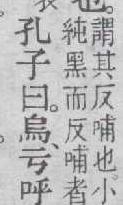 謂其反哺也。小
純黑而反哺者
孔子曰。烏、亏呼